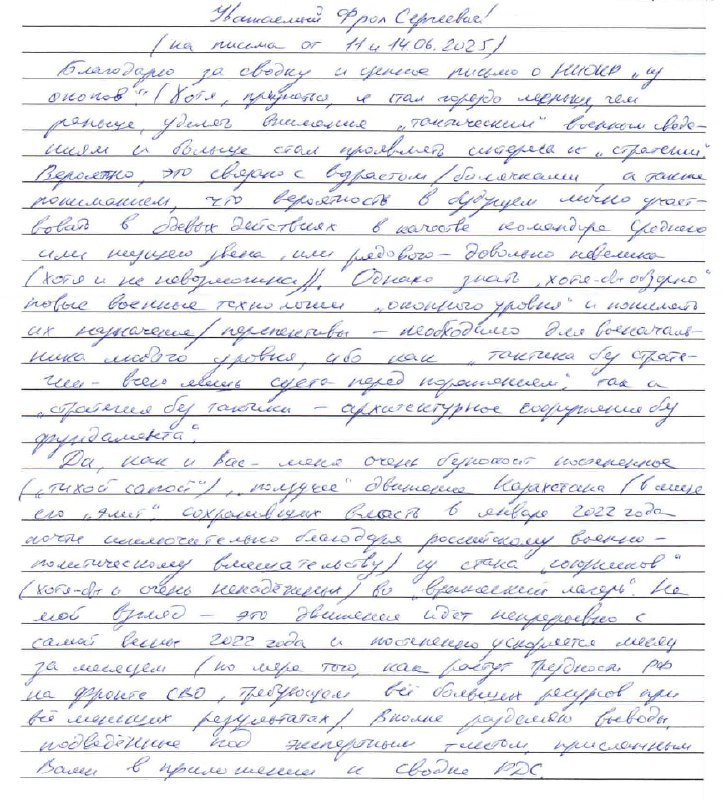 Уважаемый Фрол Сергеевич!
(на письма от 11 и 14.06.2025)
Благодарю за сводку и ценное письмо о НИОКР „из
окопов". (Хотя, признаться, я стал гораздо меньше, чем
раньше, уделять внимания „тактическим" военным сведе-
ниям и больше стал проявлять интереса к „стратегии".
Вероятно, это связано с возрастом/болячками, а также
пониманием, что вероятность в будущем лично участ-
вовать в боевых действиях в качестве командира среднего
или низшего звена, или рядового – довольно невелика
(хотя и не невозможна)). Однако знать „хотя-бы обзорно"
новые военные технологии „окопного уровня" и понимать
их назначение/перспективы – необходимо для военачаль-
ника любого уровня, ибо как „тактика без страте-
гии – всего лишь суета перед поражением", так и
„стратегия без тактики – архитектурное сооружение без
фундамента".
Да, как и Вас – меня очень беспокоит постепенное
(„тихой сапой"), „ползучее" движение Казахстана (в лице
его „элит", сохранивших власть в январе 2022 года
почти исключительно благодаря российскому военно-
политическому вмешательству) из стана „союзников"
(хотя-бы и очень ненадёжных) во „вражеский лагерь". На
мой взгляд – это движение идёт непрерывно с
самой весны 2022 года и постепенно ускоряется месяц
за месяцем (по мере того, как растут трудности РФ
на фронте СВО, требующем всё больших ресурсов при
всё меньших результатах). Вполне разделяю выводы,
подведённые под экспертным текстом, присланным
Вами в приложении к сводке РДС.